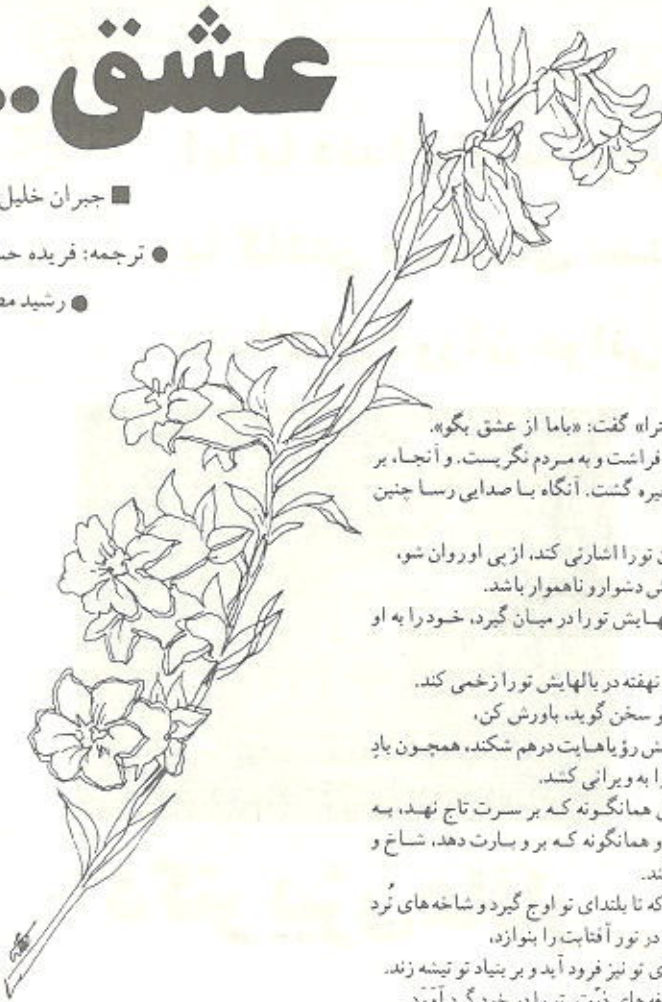 عشق..
■ جبران خلیل
● ترجمه: فریده
● رشید
گفت: «باما از عشق بگو».
فراشت و به مردم نگریست. و آنجا، بر
گشت. آنگاه با صدایی رسا چنین
تو را اشارتی کند، از پی او روان شو،
دشوار و ناهموار باشد.
تو را در میان گیرد، خود را به او
نهفته در بالهایش تو را زخمی کند.
سخن گوید، باورش کن،
رؤیاهایت درهم شکند، همچون بادِ
به ویرانی کشد.
همانگونه که بر سرت تاج نهد، به
و همانگونه که بر و بارت دهد، شاخ و
که تا بلندای تو اوج گیرد و شاخه‌های تُرد
در نور آفتابت را بنوازد،
تو نیز فرود آید و بر بنیاد تو تیشه زند.